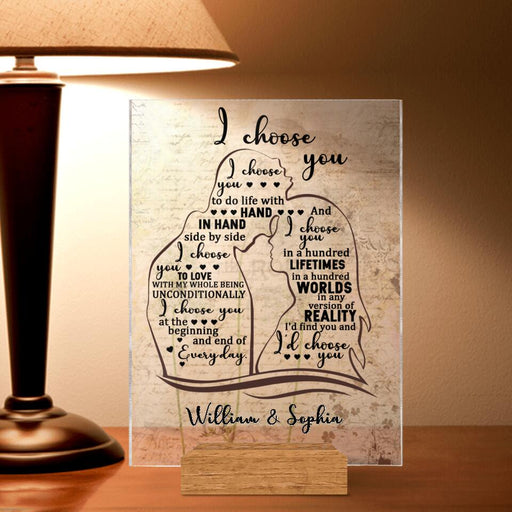 I choose
you
I choose
you
to do life with
HAND
IN HAND
side by side
I choose
you
TO LOVE
WITH MY WHOLE BEING
UNCONDITIONALLY
I choose you
at the
beginning
and end of
Everyday.
And
I choose
you
in a hundred
LIFETIMES
in a hundred
WORLDS
in any
version of
REALITY
I'd find you and
I'd choose
you
William & Sophia